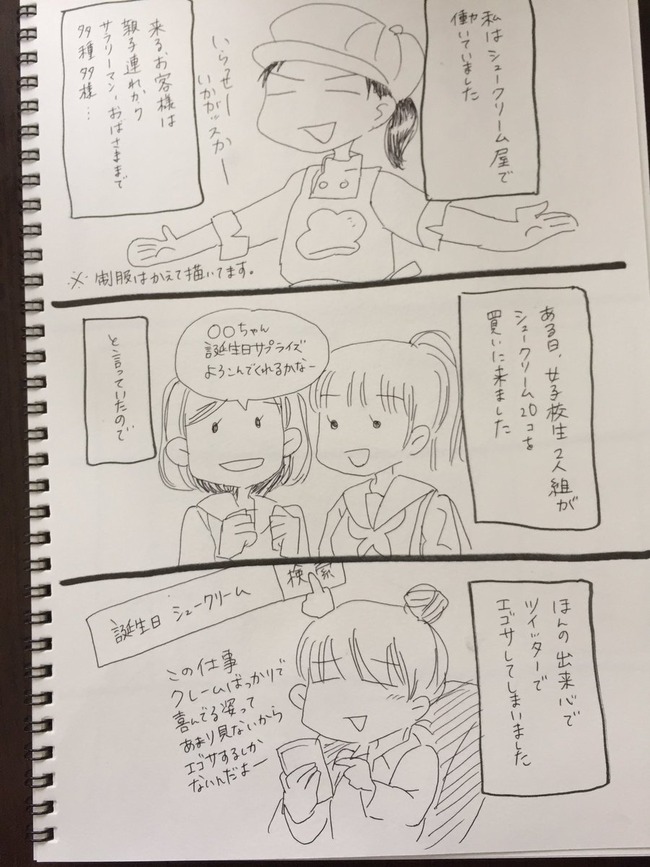 私はシュークリーム屋で
働いていました
いらっせー
いかがッスカー
来る、お客様は
親子連れから
サラリーマン、おばさままで
多種多様…
※制服はかえて描いてます。
ある日、女子校生2人組が
シュークリーム20コを
買いに来ました
〇〇ちゃん
誕生日サプライズ
よろこんでくれるかなー
と言っていたので
ほんの出来心で
ツイッターで
エゴサしてしまいました
誕生日 シュークリーム
検索
この仕事
クレームばっかりで
喜んでる姿って
あまり見ないから
エゴサするしか
ないんだよー